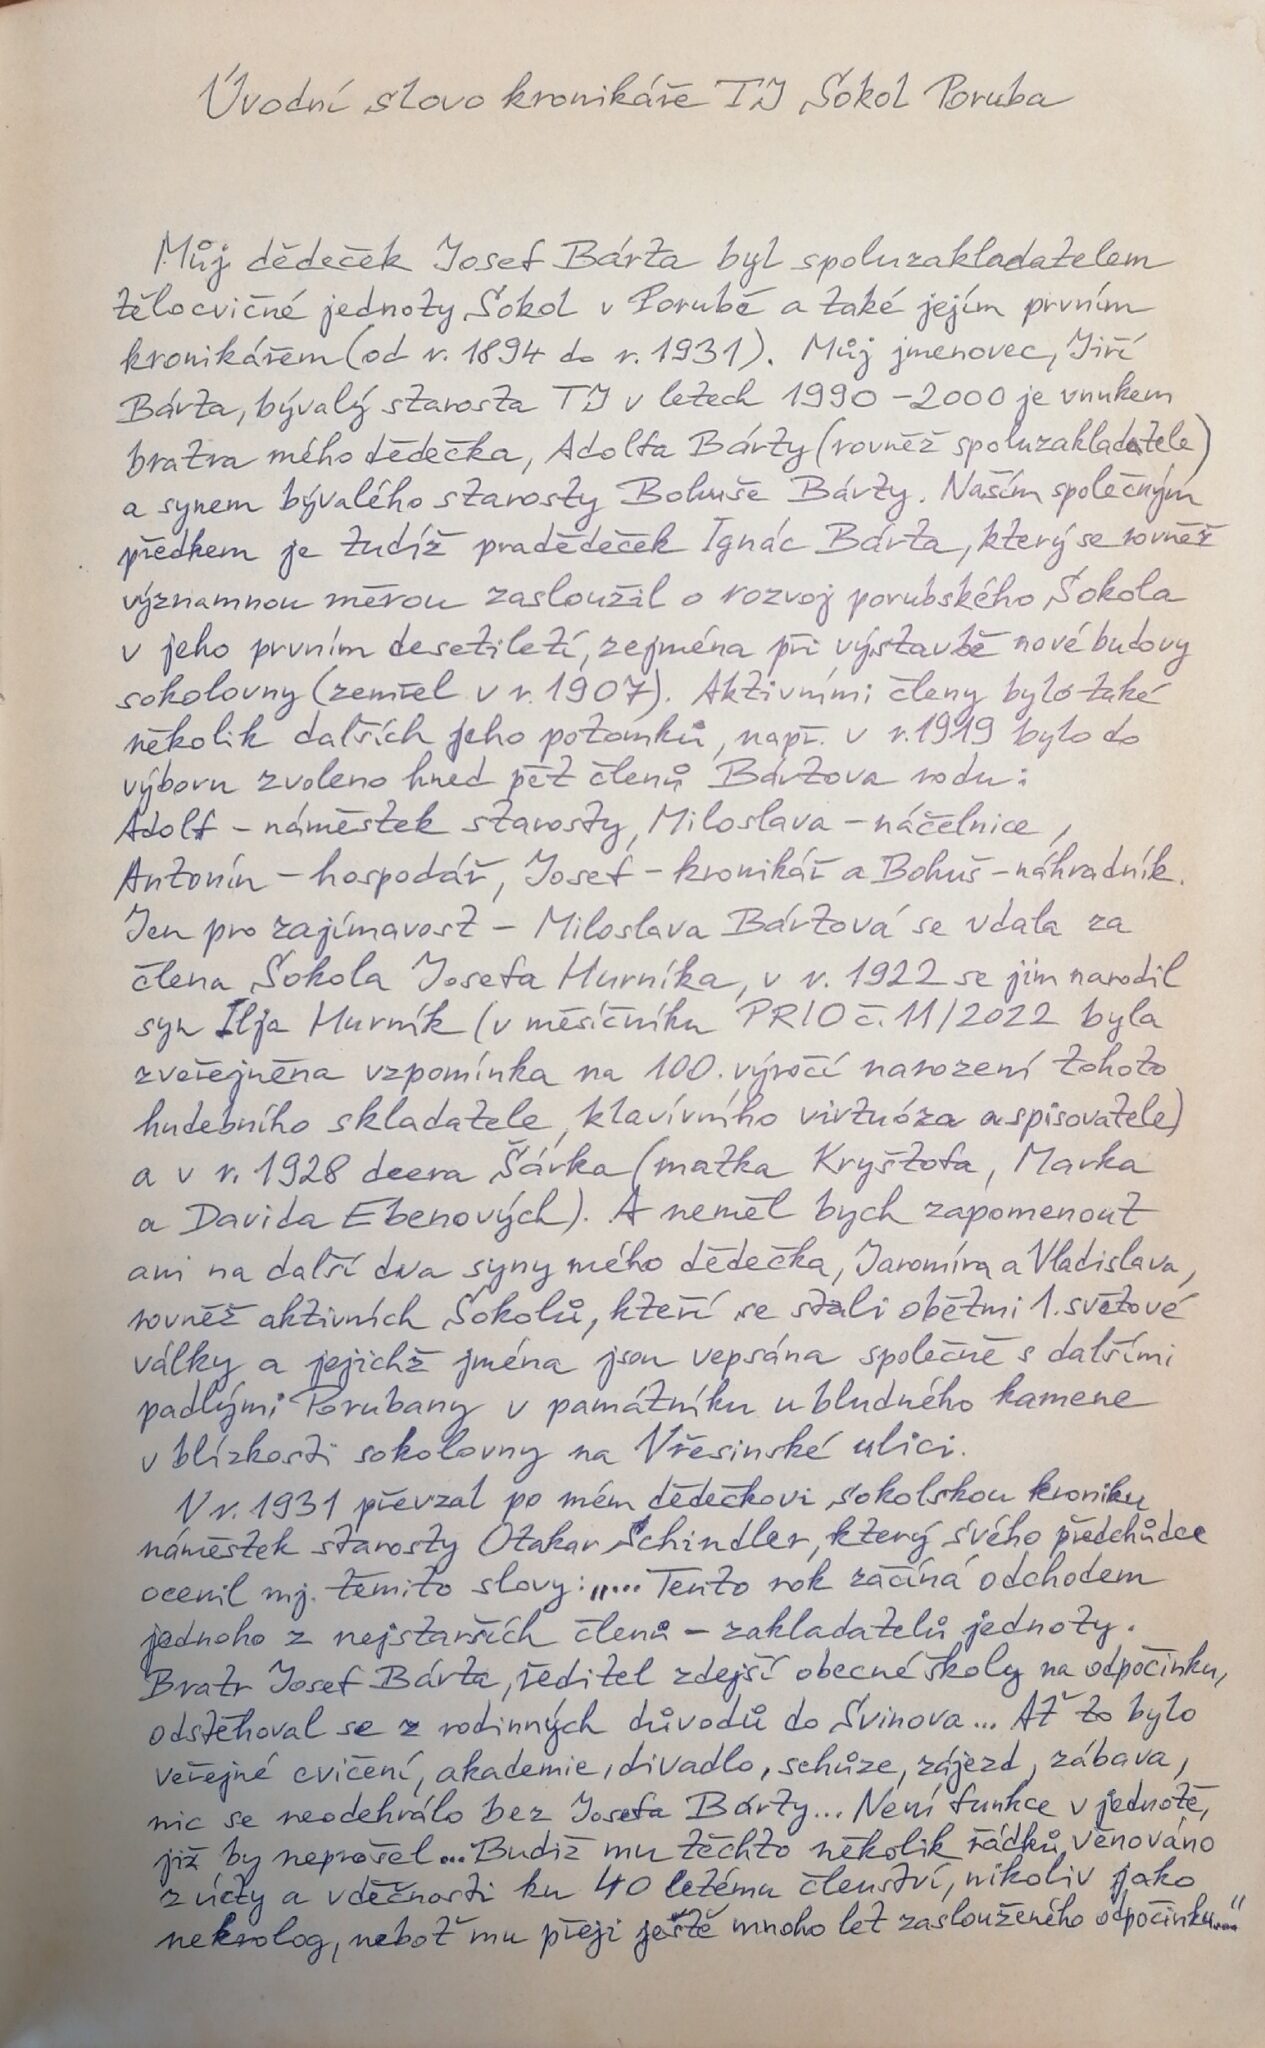 Úvodní slovo kronikáře TJ Sokol Poruba
Můj dědeček Josef Bárta byl spoluzakladatelem
tělocvičné jednoty Sokol v Porubě a také jejím prvním
kronikářem (od r. 1894 do r. 1931). Můj jmenovec, Jiří
Bárta, bývalý starosta TJ v letech 1990-2000 je vnukem
bratra mého dědečka, Adolfa Bárty (rovněž spoluzakladatele)
a synem bývalého starosty Bohuše Bárty. Naším společným
předkem je tudíž pradědeček Ignác Bárta, který se rovněž
významnou měrou zasloužil o rozvoj porubského Sokola
v jeho prvním desetiletí, zejména při výstavbě nové budovy
sokolovny (zemřel v r. 1907). Aktivními členy bylo také
několik dalších jeho potomků, např. v r. 1919 bylo do
výboru zvoleno hned pět členů Bártova rodu:
Adolf - náměstek starosty, Miloslava - náčelnice,
Antonín - hospodář, Josef - kronikář a Bohuš - náhradník.
Jen pro zajímavost - Miloslava Bártová se vdala za
člena Sokola Josefa Hurníka, v r. 1922 se jim narodil
syn Ilja Hurník (v měsíčníku PRIO č. 11/2022 byla
zveřejněna vzpomínka na 100. výročí narození tohoto
hudebního skladatele, klavírního virtuóza a spisovatele)
a v r. 1928 dcera Šárka (matka Kryštofa, Marka
a Davida Ebenových). A neměl bych zapomenout
ani na další dva syny mého dědečka, Jaromíra a Vladislava,
rovněž aktivních Sokolů, kteří se stali obětmi 1. světové
války a jejichž jména jsou vepsána společně s dalšími
padlými Porubany v památníku u bludného kamene
v blízkosti sokolovny na Vřesinské ulici.
V r. 1931 převzal po mém dědečkovi sokolskou kroniku
náměstek starosty Otakar Schindler, který svého předchůdce
ocenil mj. těmito slovy: „... Tento rok začíná odchodem
jednoho z nejstarších členů - zakladatelů jednoty.
Bratr Josef Bárta, ředitel zdejší obecné školy na odpočinku,
odstěhoval se z rodinných důvodů do Svinova... Ať to bylo
veřejné cvičení, akademie, divadlo, schůze, zájezd, zábava,
nic se neodehrálo bez Josefa Bárty... Není funkce v jednotě,
již by neprošel... Budiž mu těchto několik řádků věnováno
z úcty a vděčnosti ku 40 letému členství, nikoliv jako
nekrolog, neboť mu přeji ještě mnoho let zaslouženého odpočinku...."